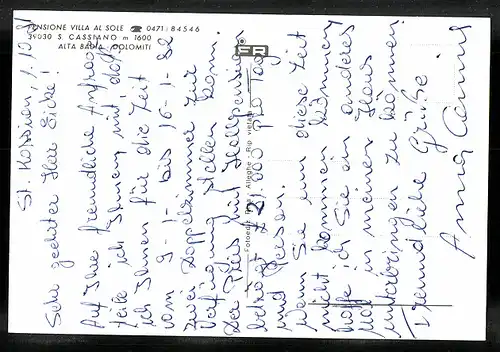 PENSIONE VILLA AL SOLE ☎ 0471/84546
39030 S. CASSIANO m 1600
ALTA BADIA - DOLOMITI
FR
Fotoedit Riva - Alleghe - Rip. vietata
St. Kassian, 1.10.81
Sehr geehrter Herr Eicke!
Auf Ihre freundliche Anfrage
teile ich Ihnen mit, daß
ich Ihnen für die Zeit
vom 9-1- bis 16-1-82
zwei Doppelzimmer zur
Verfügung stellen kann.
Der Preis mit Halbpension
beträgt £ 21.000 pro Tag
und Person.
Wenn Sie um diese Zeit
nicht kommen können
hoffe ich Sie ein anderes
Mal in meinem Haus
unterbringen zu können
Freundliche Grüße.
Anna